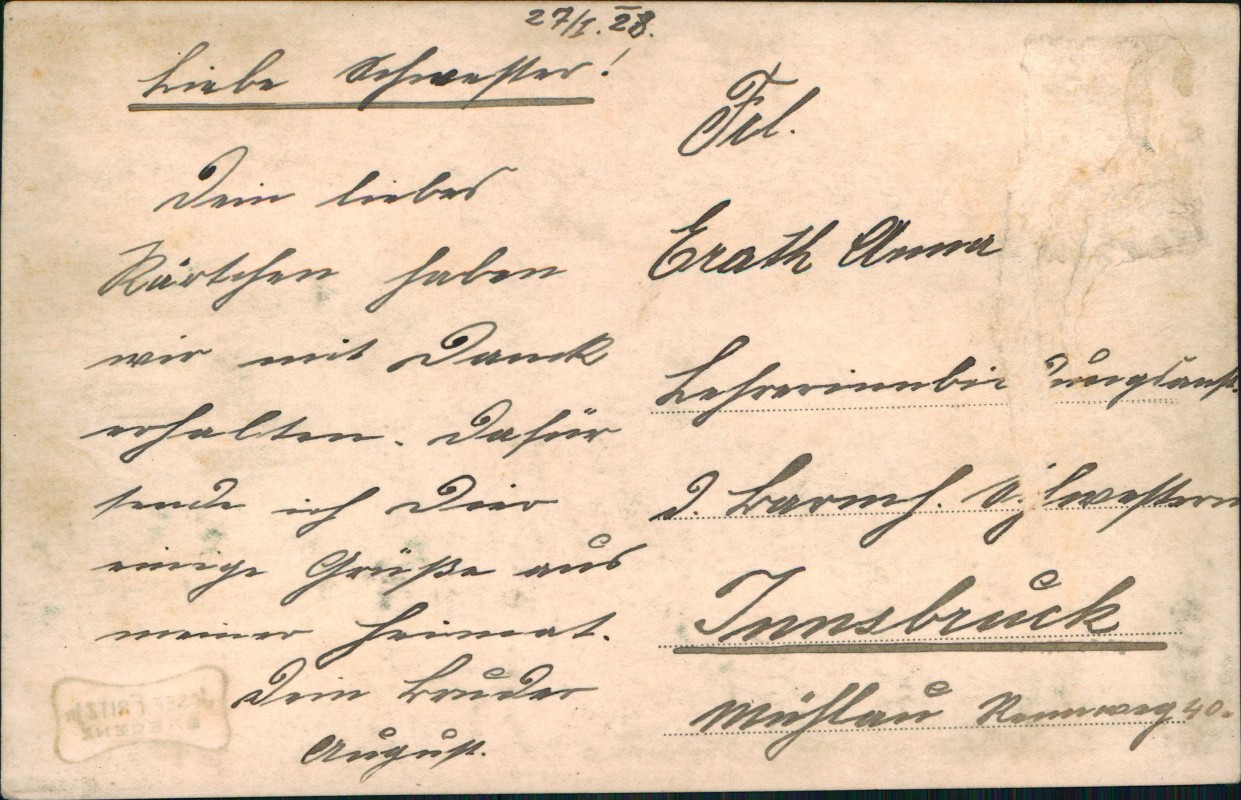 27/I. 28.
Liebe Schwester!
Dein liebes
Kärtchen haben
wir mit Danck
erhalten. Dafür
sende ich Dier
einige Grüße aus
meiner Heimat.
Dein Bruder
August.
Frl.
Erath Anna
Lehrerinnbildungsanst.
d. Barmh. Schwestern
Innsbruck
Mühlau Rennweg 40.
JOSEF FRITZ
BREGENZ